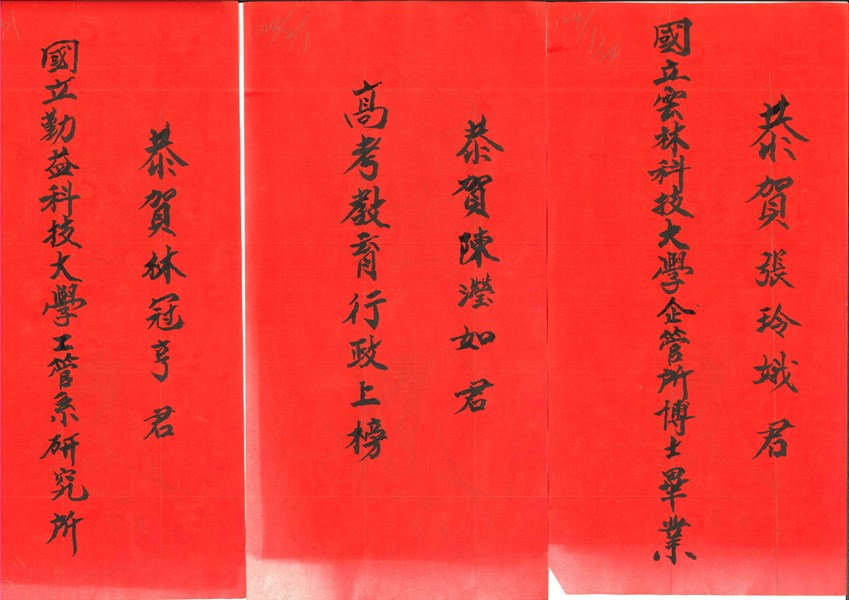 恭賀張玲娥君
國立雲林科技大學企管所博士畢業
恭賀陳瀅如君
高考教育行政上榜
恭賀林冠亨君
國立勤益科技大學工管系研究所